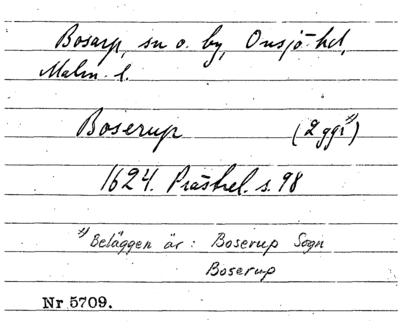 Bosarp, sn o. by, Onsjö hd,
Malm. l.
Boserup (2 ggr 1))
1624. Prästrel. s. 98
1) Beläggen är: Boserup Sogn
Boserup
Nr 5709.